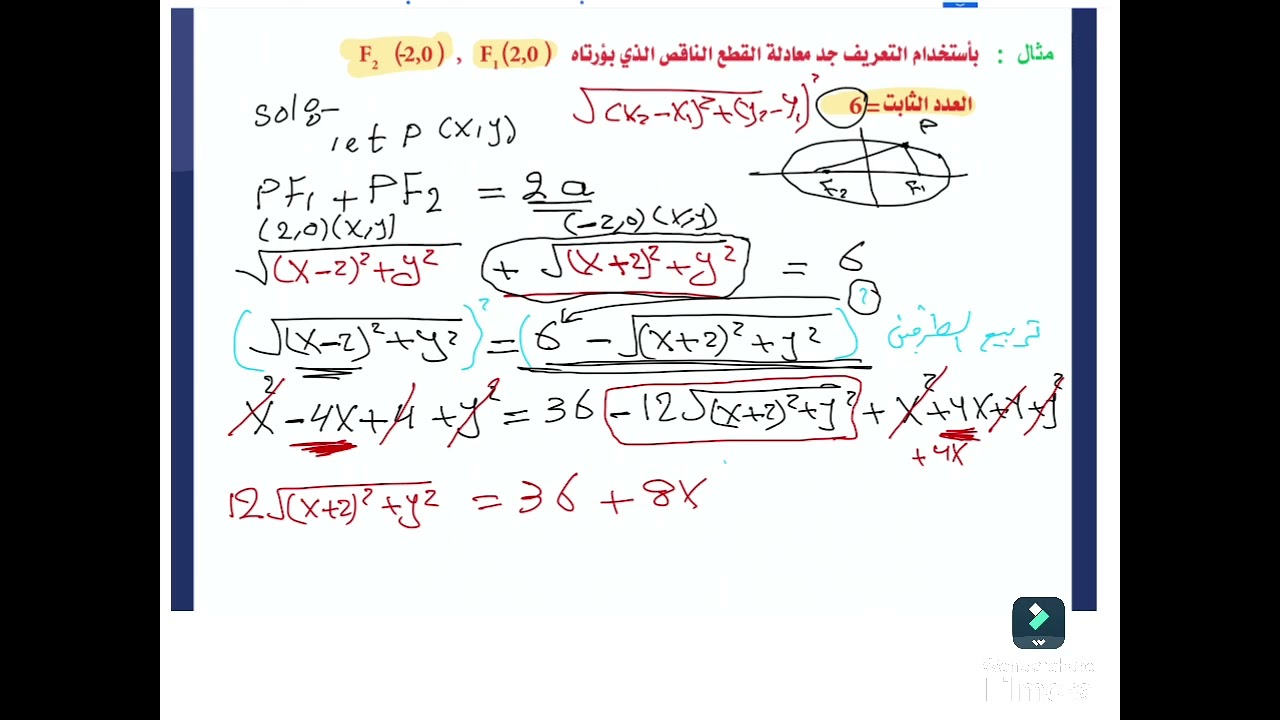 مثال : بأستخدام التعريف جد معادلة القطع الناقص الذي بؤرتاه F₁(2,0) , F₂ (-2,0)
العدد الثابت=6
√(x₂-x₁)²+(y₂-y₁)²
Sol:-
let P (x,y)
P
F₂ F₁
PF₁ + PF₂ = 2a
(2,0)(x,y) (-2,0)(x,y)
√(x-2)²+y² + √(x+2)²+y² = 6
(√(x-2)²+y²)² = (6 - √(x+2)²+y²)² تربيع الطرفين
x²-4x+4+y² = 36 -12√(x+2)²+y² + x²+4x+4+y²
+4x
12√(x+2)²+y² = 36 + 8x
Wondershare
Filmora